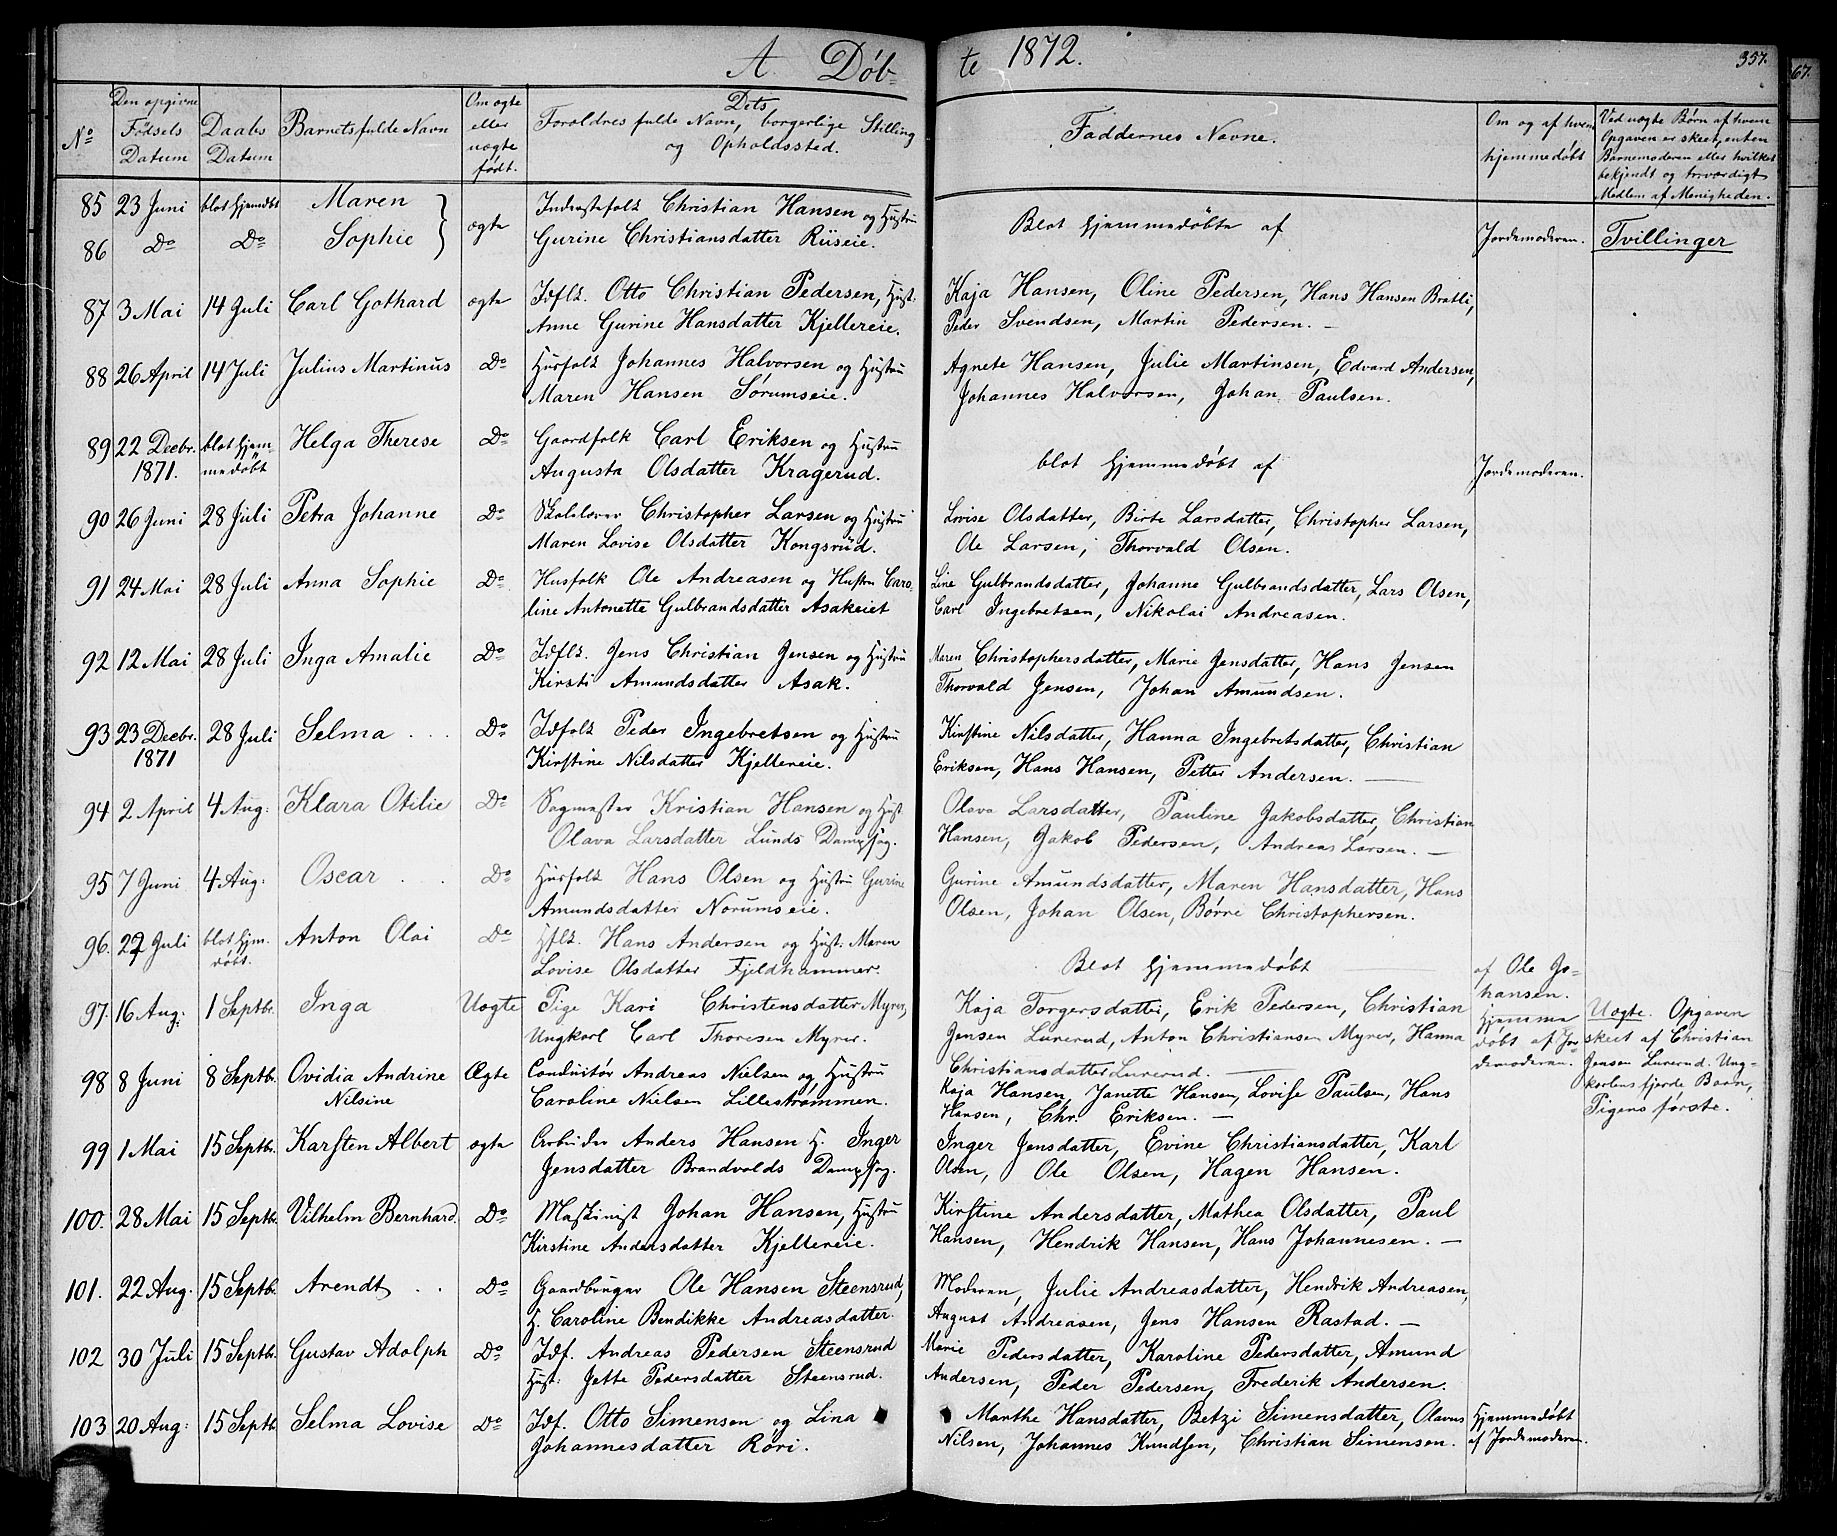 A. Døb- te 1872. 357.
67.
No
Den opgivne Fødsels Datum
Daabs Datum
Barnets fulde Navn
Om ægte eller uægte født.
Dets Forældres fulde Navn, borgerlige Stilling og Opholdssted.
Faddernes Navne.
Om og af hvem hjemmedøbt
Ved uægte Børn af hvem Opgaven er skeet, enten Barnemoderen eller hvilket bekjendt og troværdigt Medlem af Menigheden.
85 23 Juni blot hjemdøbt Maren ægte Inderstefolk Christian Hansen og Hustru Blot hjemmedøbte af Jordemoderen. Tvillinger
86 Do Do Sophie Gurine Christiansdatter Riiseie.
87 3 Mai 14 Juli Carl Gothard ægte Idflk. Otto Christian Pedersen, Hust. Kaja Hansen, Oline Pedersen, Hans Hansen Bratli,
Anne Gurine Hansdatter Kjellereie. Peder Svendsen, Martin Pedersen. —
88 26 April 14 Juli Julius Martinus Do Husfolk Johannes Halvorsen og Hustru Agnete Hansen, Julie Martinsen, Edvard Andersen,
Maren Hansen Sørumseie. Johannes Halvorsen, Johan Paulsen.
89 22 Decbr. blot hjem- Helga Therese Do Gaardfolk Carl Eriksen og Hustru blot hjemmedøbt af Jordemoderen.
1871. medøbt Augusta Olsdatter Kragerud.
90 26 Juni 28 Juli Petra Johanne Do Skolelærer Christopher Larsen og Hustru Lovise Olsdatter, Birte Larsdatter, Christopher Larsen,
Maren Lovise Olsdatter Kongsrud. Ole Larsen, Thorvald Olsen.
91 24 Mai 28 Juli Anna Sophie Do Husfolk Ole Andreasen og Hustru Caro- Line Gulbrandsdatter, Johanne Gulbrandsdatter, Lars Olsen,
line Antonette Gulbrandsdatter Asakeiet Carl Ingebretsen, Nikolai Andreasen.
92 12 Mai 28 Juli Inga Amalie Do Idflk. Jens Christian Jensen og Hustru Maren Christophersdatter, Marie Jensdatter, Hans Jensen
Kirsti Amundsdatter Asak. Thorvald Jensen, Johan Amundsen.
93 23 Decbr. 28 Juli Selma . . . Do Idfolk Peder Ingebretsen og Hustru Kirstine Nilsdatter, Hanna Ingebretsdatter, Christian
1871 Kirstine Nilsdatter Kjellereie. Eriksen, Hans Hansen, Petter Andersen. —
94 2 April 4 Aug: Klara Otilie Do Sagmester Kristian Hansen og Hust. Olava Larsdatter, Pauline Jakobsdatter, Christian
Olava Larsdatter Lunds Dampsag. Hansen, Jakob Pedersen, Andreas Larsen. —
95 7 Juni 4 Aug: Oscar . . Do Husfolk Hans Olsen og Hustru Gurine Gurine Amundsdatter, Maren Hansdatter, Hans
Amundsdatter Norumseie. Olsen, Johan Olsen, Børre Christophersen.
96. 27 Juli blot hjem. Anton Olai Do Hflk. Hans Andersen og Hust: Maren Blot hjemmedøbt af Ole Jo-
døbt. Lovise Olsdatter Fjeldhammer. hansen.
97. 16 Aug: 1 Septbr. Inga Uægte Pige Kari Christensdatter Myrer, Kaja Torgersdatter, Erik Pedersen, Christian Hjemme Uægte. Opgaven
Ungkarl Carl Thoresen Myrer. Jensen Lurerud, Anton Christiansen Myrer, Hanna døbt af Jor skeet af Christian
Christiansdatter Lurerud. — demoderen. Jensen Lurerud. Ung-
karlens fjerde Barn,
Pigens første.
98 8 Juni 8 Septbr. Ovidia Andrine Ægte Conductør Andreas Nielsen og Hustru Kaja Hansen, Janette Hansen, Lovise Paulsen, Hans
Nilsine Caroline Nielsen Lillestrømmen. Hansen, Chr. Eriksen. —
99 1 Mai 15 Septbr. Karsten Albert ægte Arbeider Anders Hansen H. Inger Inger Jensdatter, Evine Christiansdatter, Karl
Jensdatter Brandvolds Dampsag. Olsen, Ole Olsen, Hagen Hansen.
100. 28 Mai 15 Septbr. Vilhelm Bernhard. Do Maskinist Johan Hansen, Hustru Kirstine Andersdatter, Mathea Olsdatter, Paul
Kirstine Andersdatter Kjellereie. Hansen, Hendrik Hansen, Hans Johannesen. —
101. 22 Aug. 15 Septbr. Arendt . . Do Gaardbruger Ole Hansen Steensrud, Moderen, Julie Andreasdatter, Hendrik Andreasen,
H. Caroline Bendikke Andreasdatter. August Andreasen, Jens Hansen Rastad. —
102 30 Juli 15 Septbr. Gustav Adolph Do Idf. Andreas Pedersen Steensrud Marie Pedersdatter, Karoline Pedersdatter, Amund
Hust: Jette Pedersdatter Steensrud. Andersen, Peder Pedersen, Frederik Andersen.
103 20 Aug: 15 Septb. Selma Lovise Do Idf. Otto Simensen og Lina Marthe Hansdatter, Betzi Simensdatter, Olavus Hjemmedøbt
Johannesdatter Røri. Nilsen, Johannes Knudsen, Christian Simensen. af Jordemoderen.